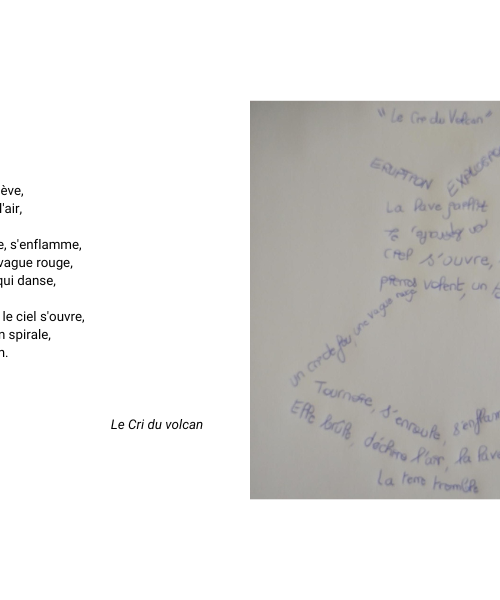 ève,
l'air,
e, s'enflamme,
vague rouge,
qui danse,
le ciel s'ouvre,
n spirale,
n.
Le Cri du volcan
"Le Cri du Volcan"
ERUPTION EXPLOSION
La lave jaillit
ciel s'ouvre,
volent, un
un cercle de feu, une vague rouge
Tournoie, s'enroule, s'enflam
Elle brûle, déchire l'air, la lave
La terre tremble